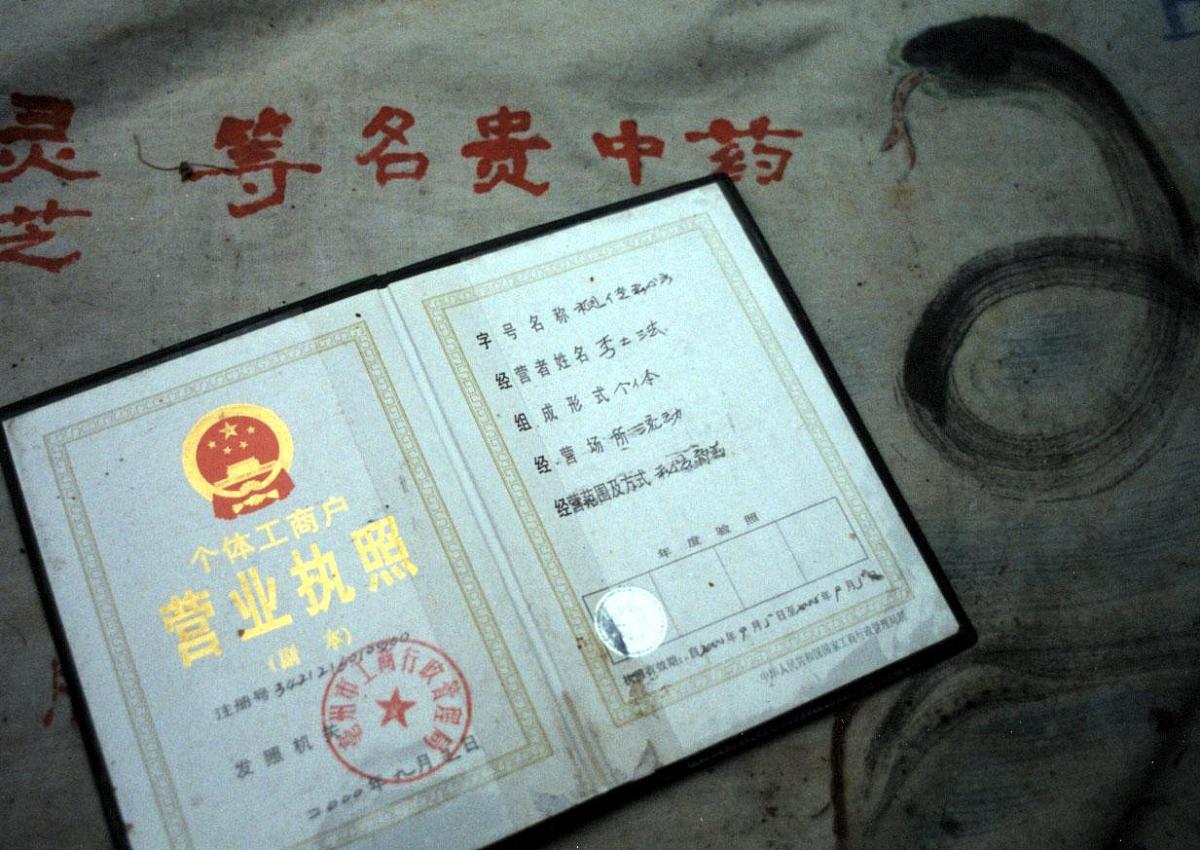 灵芝
等名贵中药
个体工商户
营业执照
(副 本)
注册号
发照机关
亳州市工商行政管理局
二〇〇〇年 月 日
字号名称
经营者姓名 李士法
组成形式 个体
经营场所 流动
经营范围及方式
年度验照
执照有效期:自2000年9月5日至 年9月5日
中华人民共和国国家工商行政管理局制